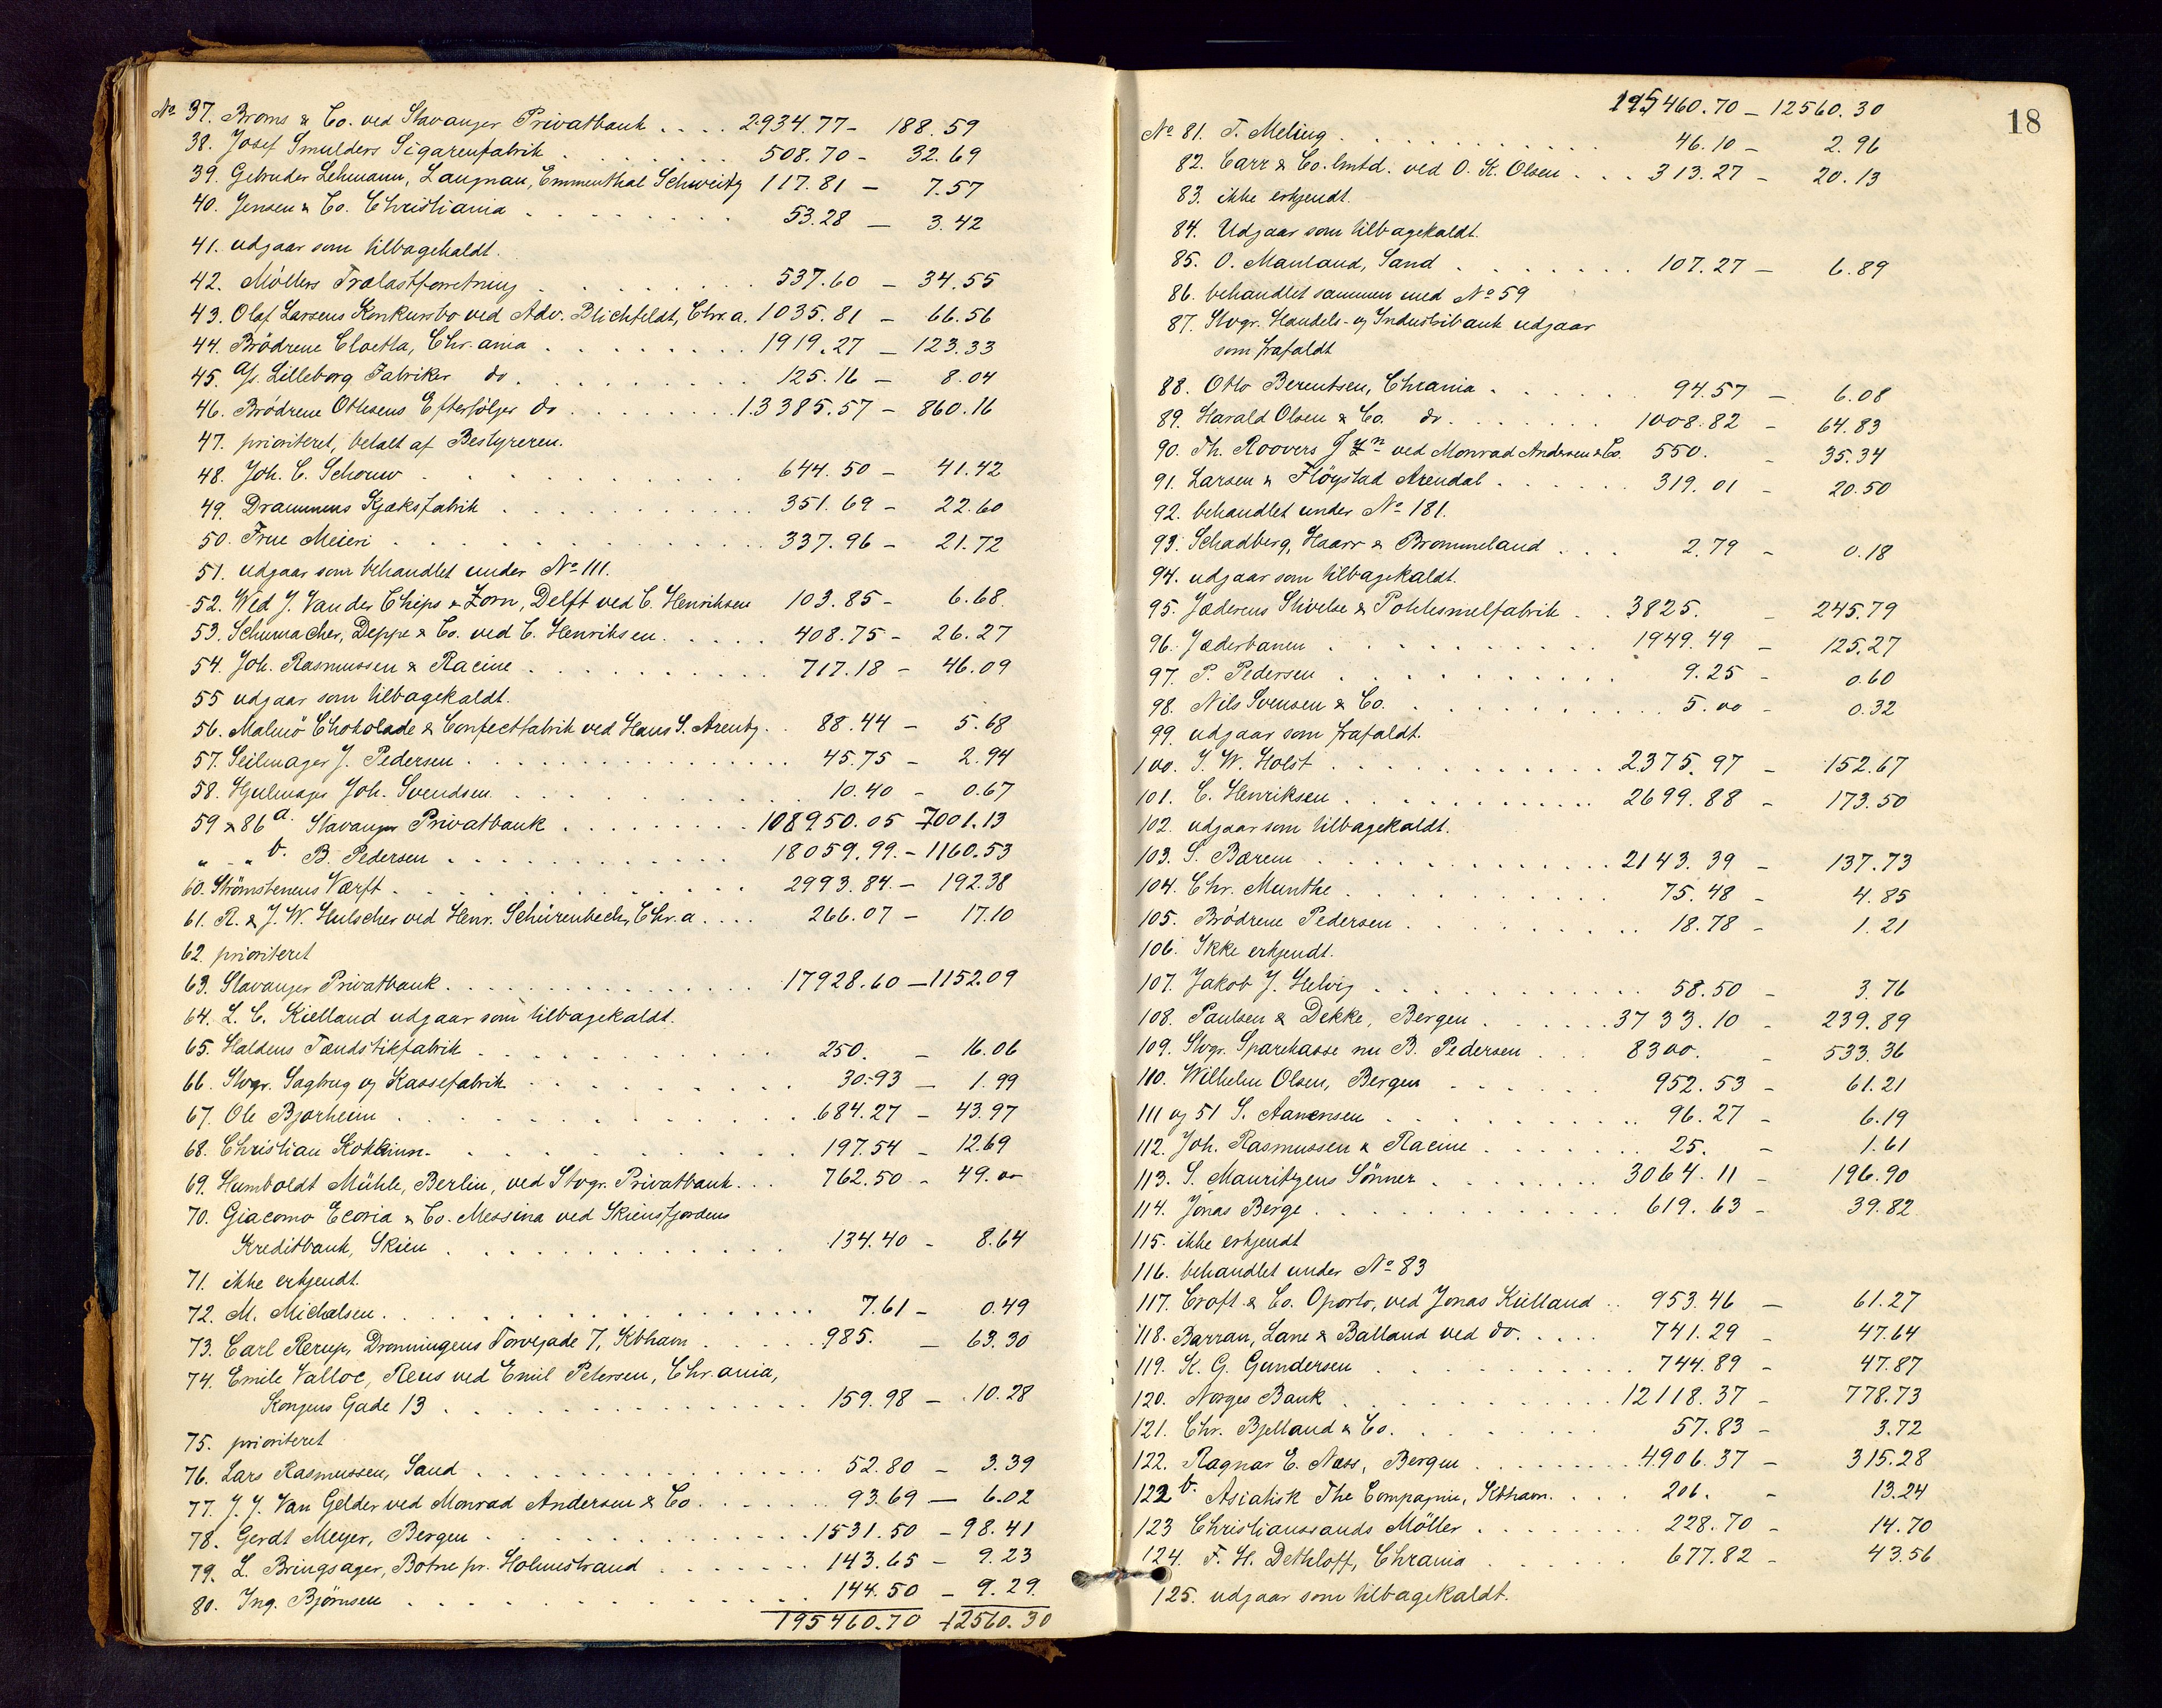 No 37. Broms & Co. ved Stavanger Privatbank . . . . 2934.77 - 188.59
38. Josef Smulders Sigarenfabrik . . . . . . 508.70 - 32.69
39. Gebruder Lehmann, Laugnau, Emmenthal Schweitz 117.81 - 7.57
40. Jensen & Co. Christiania . . . . . . . . 53.28 - 3.42
41. udgaar som tilbagekaldt.
42. Möllers Trælastforretning . . . . . . . . 537.60 - 34.55
43. Olaf Larsens Konkursbo ved Adv. Blichfeldt, Chr.a. 1035.81 - 66.56
44. Brödrene Cloetta, Chr.ania . . . . . . . . 1919.27 - 123.33
45. A/s. Lilleborg Fabriker do. . . . . . . . . 125.16 - 8.04
46. Brödrene Othsens Efterfölger do . . . . . . . 13385.57 - 860.16
47. prioriteret, betalt af Bestyreren.
48. Joh. C. Schouw . . . . . . . . . . 644.50 - 41.42
49. Drammens Kjæksfabrik . . . . . . . . . 351.69 - 22.60
50. Frue Meieri . . . . . . . . . . . . 337.96 - 21.72
51. udgaar som behandlet under No 111.
52. Wed J. Van der Cheps & Zorn, Delft ved C. Henriksen 103.85 - 6.68.
53. Schumacher, Deppe & Co. ved C. Henriksen . . . . . 408.75 - 26.27
54. Joh. Rasmussen & Racine . . . . . . . . . . 717.18 - 46.09
55 udgaar som tilbagekaldt.
56. Malmö Chokolade & Confectfabrik ved Hans S. Arentz . . 88.44 - 5.68
57. Seilmager J. Pedersen . . . . . . . . . . . . 45.75 - 2.94
58. Hjulmager Joh. Svendsen . . . . . . . . . 10.40 - 0.67
59 & 86 a. Stavanger Privatbank . . . . . . . . 108950.05 7001.13
" - " b. B. Pedersen . . . . . . . . . . . . 18059.99. - 1160.53
60. Strömstenens Værft . . . . . . . . . . . . 2993.84. - 192.38
61. R. & J. W. Hulscher ved Henr. Schürenbeck, Chr.a . . . . 266.07 - 17.10
62. prioriteret
63. Stavanger Privatbank . . . . . . . . . . . . 17928.60 - 1152.09
64. L. C. Kielland udgaar som tilbagekaldt.
65. Haldens Tændstikfabrik . . . . . . . . . . . 250. - 16.06
66. Stvgr. Sagbrug og Kassefabrik . . . . . . . . . 30.93 - 1.99
67. Ole Bjorheim . . . . . . . . . . . . . 684.27 - 43.97
68. Christian Kokkinn . . . . . . . . . . . 197.54 - 12.69
69. Humboldt Mühle, Berlin, ved Stvgr. Privatbank . . . 762.50 - 49.00
70. Giacomo Ecoria & Co. Messina ved Skiensfjordens
Kreditbank, Skien . . . . . . . . . . . . 134.40 - 8.64
71. ikke erkjendt.
72. M. Michalsen . . . . . . . . . . . . . . 7.61 - 0.49
73. Carl Rerup, Dronningens Tvergade 7, Kbhavn . . . . . 985. - 63.30
74. Emile Valloc, Reus ved Emil Petersen, Chr.ania,
Kongens Gade 13 . . . . . . . . . . . . 159.98 - 10.28
75. prioriteret
76. Lars Rasmussen, Sand . . . . . . . . . . . . 52.80 - 3.39
77. J. J. Van Gelder ved Monrad Andersen & Co . . . . . . 93.69 - 6.02
78. Gerdt Meyer, Bergen . . . . . . . . . . . . 1531.50 - 98.41
79. L. Bringsager, Botne pr. Holmestrand . . . . . . . 143.65 - 9.23
80. Ing. Björnsen . . . . . . . . . . . . . . 144.50 - 9.29.
195460.70 12560.30
195460.70 - 12560.30
18
No 81. T. Meling . . . . . . . . . . . . 46.10 - 2.96
82. Carr & Co. lmtd. ved O. K. Olsen . . . 313.27 - 20.13
83. ikke erkjendt.
84. Udgaar som tilbagekaldt.
85. O. Mauland, Sand . . . . . . . . 107.27 - 6.89
86. behandlet sammen med No 59
87. Stvgr. Handels- og Industribank udgaar
som frafaldt
88. Otto Berentsen, Chrania . . . . . . 94.57 - 6.08
89. Harald Olsen & Co. do . . . . . . . 1008.82 - 64.83
90. Th. Roovers J Zn ved Monrad Andersen & Co. 550. - 35.34
91. Larsen & Flöystad Arendal . . . . . . 319.01 - 20.50
92. behandlet under No 181.
93. Schadberg, Haarr & Brommeland . . . 2.79 - 0.18
94. udgaar som tilbagekaldt.
95. Jæderens Stivelse & Potetesmelfabrik . . 3825. - 245.79
96. Jæderbanen . . . . . . . . . . 1949.49 - 125.27
97. P. Pedersen . . . . . . . . . . . 9.25 - 0.60
98. Nils Svensen & Co. . . . . . . . . . . 5.00 - 0.32
99. udgaar som frafaldt.
100. J. W. Holst . . . . . . . . . . . 2375.97 - 152.67
101. C. Henriksen . . . . . . . . . . 2699.88 - 173.50
102. udgaar som tilbagekaldt.
103. S. Bærem . . . . . . . . . . . . 2143.39 - 137.73
104. Chr. Munthe . . . . . . . . . . . 75.48 - 4.85
105. Brödrene Pedersen . . . . . . . . . 18.78 - 1.21
106. Ikke erkjendt.
107. Jakob J. Helvig . . . . . . . . . . 58.50 - 3.76
108. Paulsen & Dekke, Bergen . . . . . . 3733.10 - 239.89
109. Stvgr. Sparekasse nu B. Pedersen . . . 8300. - 533.36
110. Wilhelm Olsen, Bergen . . . . . . 952.53 - 61.21
111 og 51 S. Aanensen . . . . . . . . . 96.27 - 6.19
112. Joh. Rasmussen & Racine . . . . . . . 25. - 1.61
113. S. Mauritzens Sönner . . . . . . . . 3064.11 - 196.90
114. Jonas Berge . . . . . . . . . . . . 619.63 - 39.82
115. ikke erkjendt
116. behandlet under No 83
117. Croft & Co. Oporto, ved Jonas Kielland . . 953.46 - 61.27
118. Barran, Lane & Balland ved do. . . . . 741.29 - 47.64
119. K. G. Gundersen . . . . . . . . . . 744.89 - 47.87
120. Norges Bank . . . . . . . . . . . 12118.37 - 778.73
121. Chr. Bjelland & Co. . . . . . . . . 57.83 - 3.72
122. Ragnar E. Næss, Bergen . . . . . . . 4906.37 - 315.28
122 b. Asiatisk The Compagni, Kbhavn. . . . 206. - 13.24
123 Christianssands Möller . . . . . . . 228.70 - 14.70
124. F. H. Dethloff, Chrania . . . . . . 677.82 - 43.56
125. udgaar som tilbagekaldt.